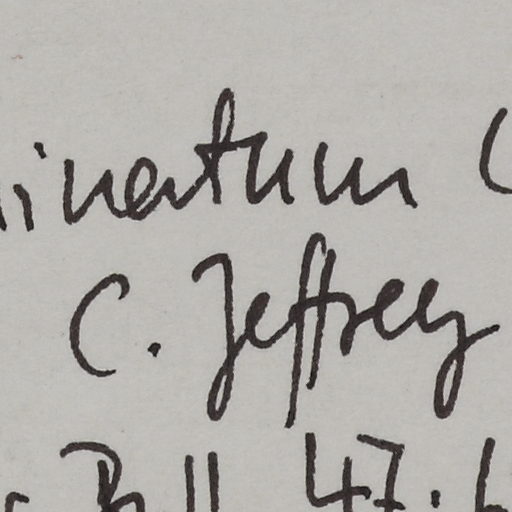 inatum (
C. Jeffrey
Bull 47: